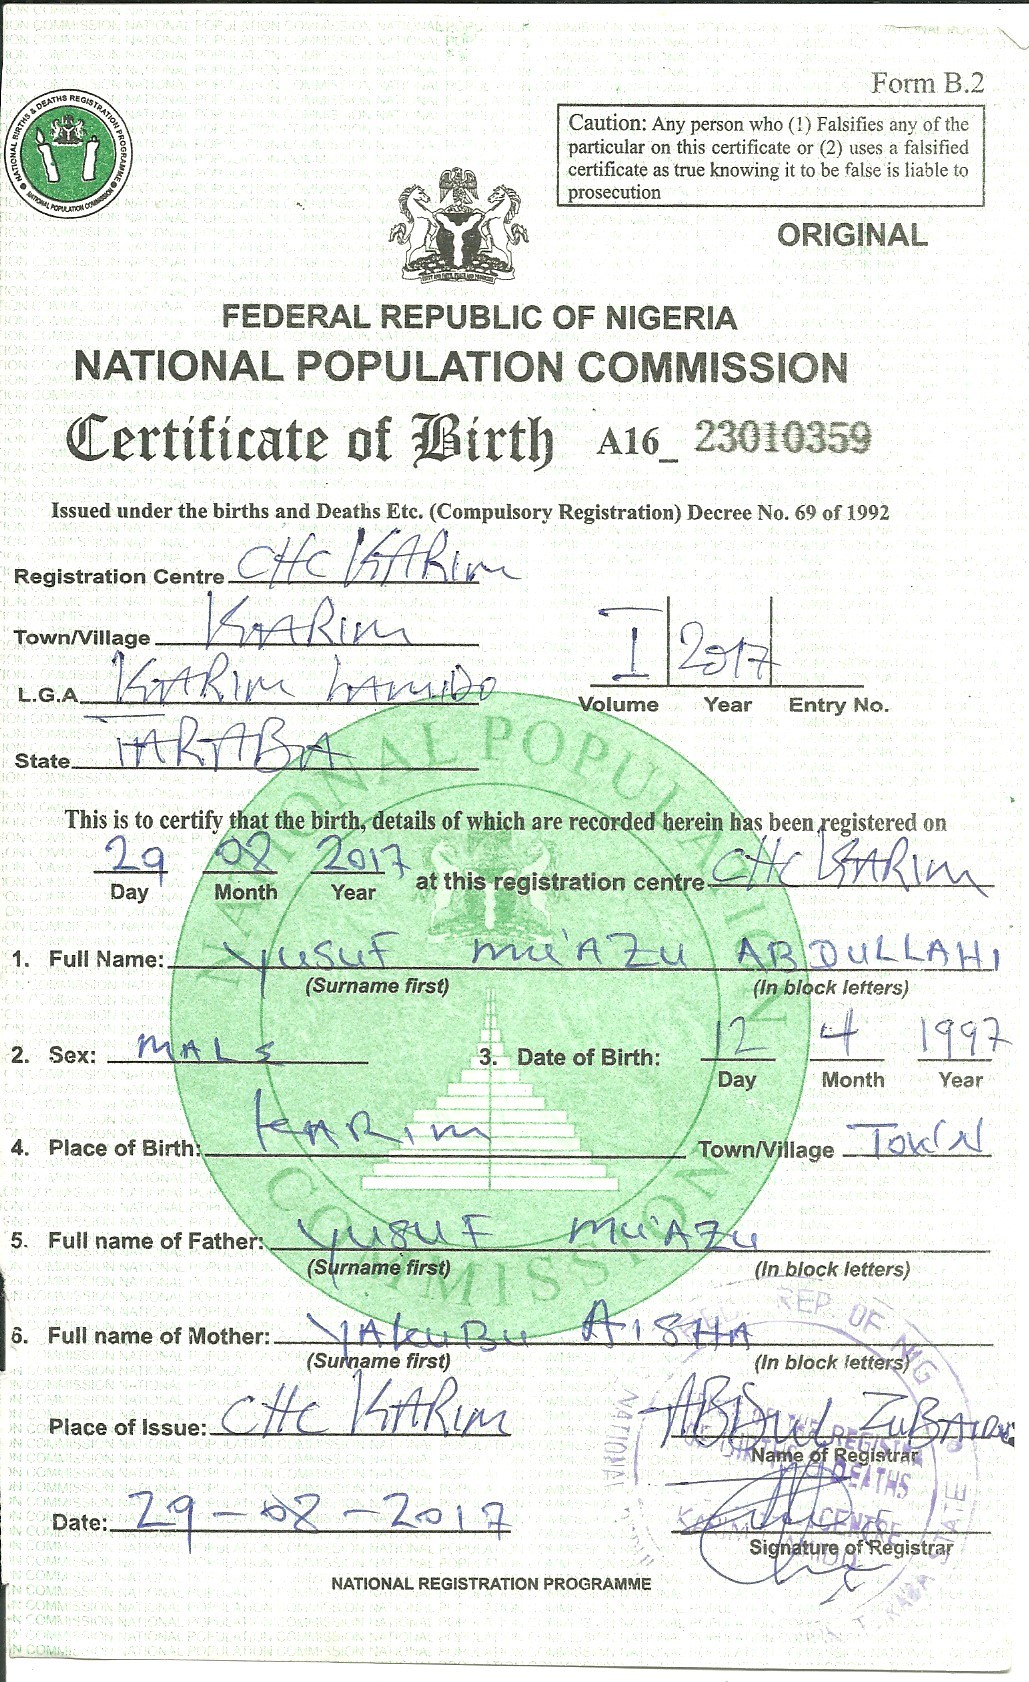 Form B.2
NATIONAL BIRTHS & DEATHS REGISTRATION PROGRAMME
NATIONAL POPULATION COMMISSION
Caution: Any person who (1) Falsifies any of the
particular on this certificate or (2) uses a falsified
certificate as true knowing it to be false is liable to
prosecution
ORIGINAL
FEDERAL REPUBLIC OF NIGERIA
NATIONAL POPULATION COMMISSION
Certificate of Birth A16_ 23010359
Issued under the births and Deaths Etc. (Compulsory Registration) Decree No. 69 of 1992
Registration Centre CHC KARIM
Town/Village KARIM
I 2017
L.G.A. KARIM LAMIDO
Volume Year Entry No.
State TARABA
This is to certify that the birth, details of which are recorded herein has been registered on
29 08 2017 at this registration centre CHC KARIM
Day Month Year
1. Full Name: YUSUF MU'AZU ABDULLAHI
(Surname first) (In block letters)
2. Sex: MALE 3. Date of Birth: 12 4 1997
Day Month Year
4. Place of Birth: KARIM Town/Village TOWN
5. Full name of Father: YUSUF MU'AZU
(Surname first) (In block letters)
6. Full name of Mother: YAKUBU AISHA
(Surname first) (In block letters)
Place of Issue: CHC KARIM ABDUL ZUBAIRU
Name of Registrar
Date: 29-08-2017
Signature of Registrar
NATIONAL REGISTRATION PROGRAMME